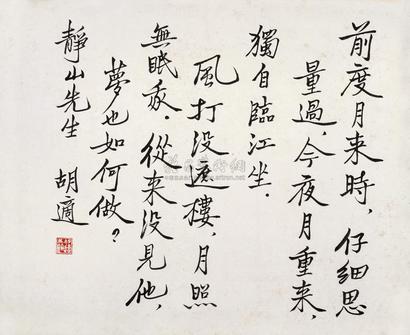 前度月来時，仔細思
量過，今夜月重来，
獨自臨江坐．
風打没遮樓，月照
無眠我．從来没見他，
夢也如何做？
靜山先生
胡適